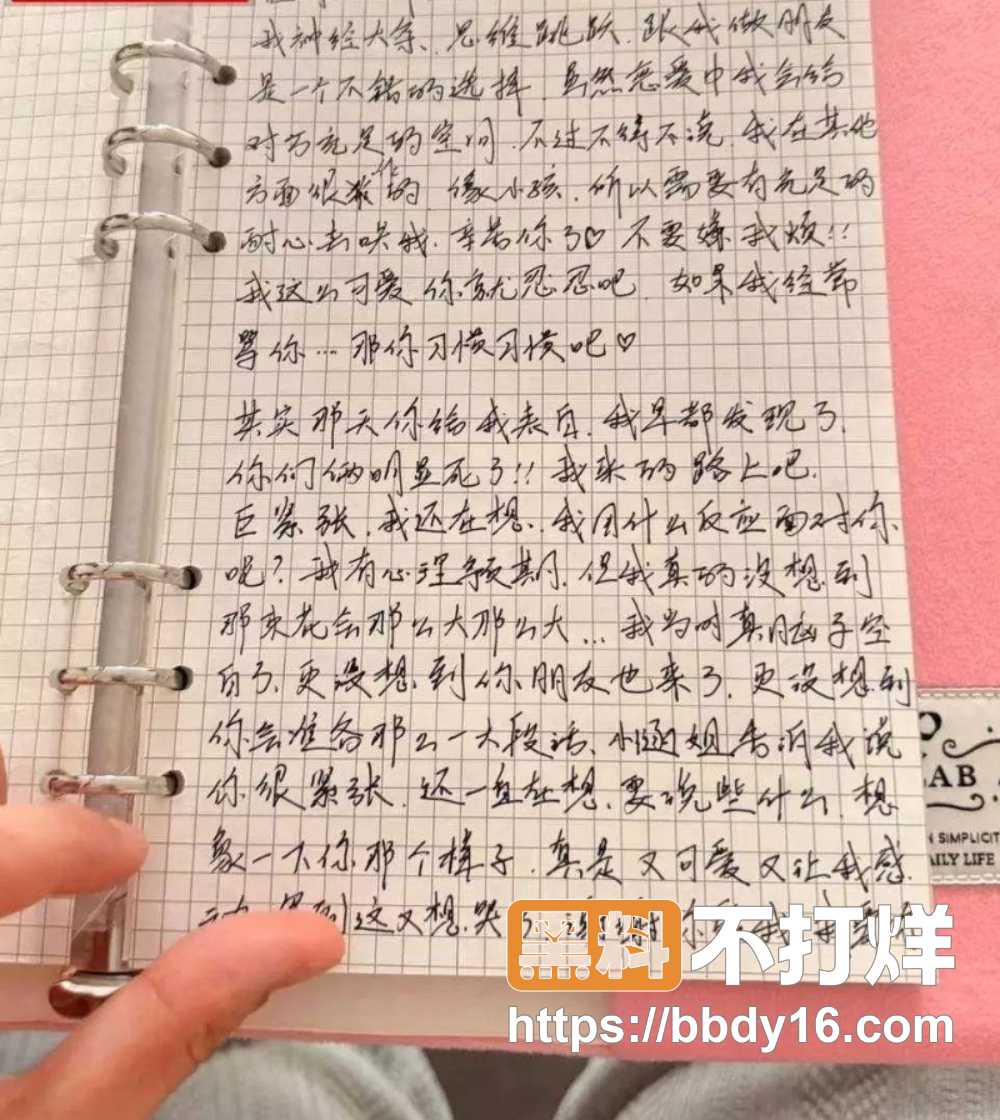 我神经大条、思维跳跃、跟我做朋友
是一个不错的选择、虽然恋爱中我会给
对方充足的空间、不过不得不说、我在其他
方面很难的、像小孩、所以需要有充足的
耐心去哄我、辛苦你了♡ 不要嫌我烦!!
我这么可爱 你就忍忍吧、如果我经常
骂你… 那你习惯习惯吧♡
其实那天你给我表白、我早都发现了、
你们俩明显死了!! 我来的路上吧、
巨紧张、我还在想、我用什么反应面对你
呢? 我有心理预期、但我真的没想到
那束花会那么大那么大… 我当时真脑子空
白了、更没想到你朋友也来了、更没想到
你会准备那么一大段话、小涵姐告诉我说
你很紧张、还一直在想、要说些什么、想
象一下你那个样子、真是又可爱又让我感
这又想哭
AB
N SIMPLICIT
AILY LIFE
黑料不打烊
https://bbdy16.com